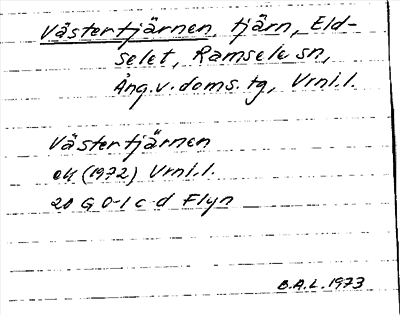 Västertjärnen, tjärn, Eld-
selet, Ramsele sn,
Ång.v.doms.tg, Vrnl.l.
Västertjärnen
ök (1972) Vrnl.l.
20 G 0-1 c-d Flyn
B.A.L. 1973